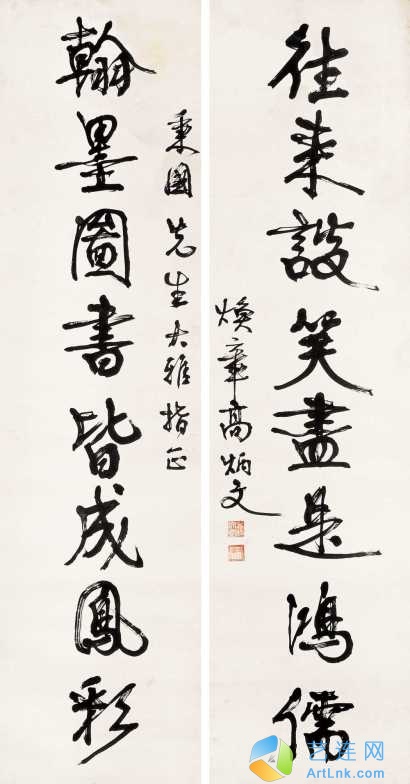 往來談笑盡是鴻儒
煥章高炳文
秉國先生大雅指正
翰墨圖書皆成鳳彩
艺连网
ArtLnk.com